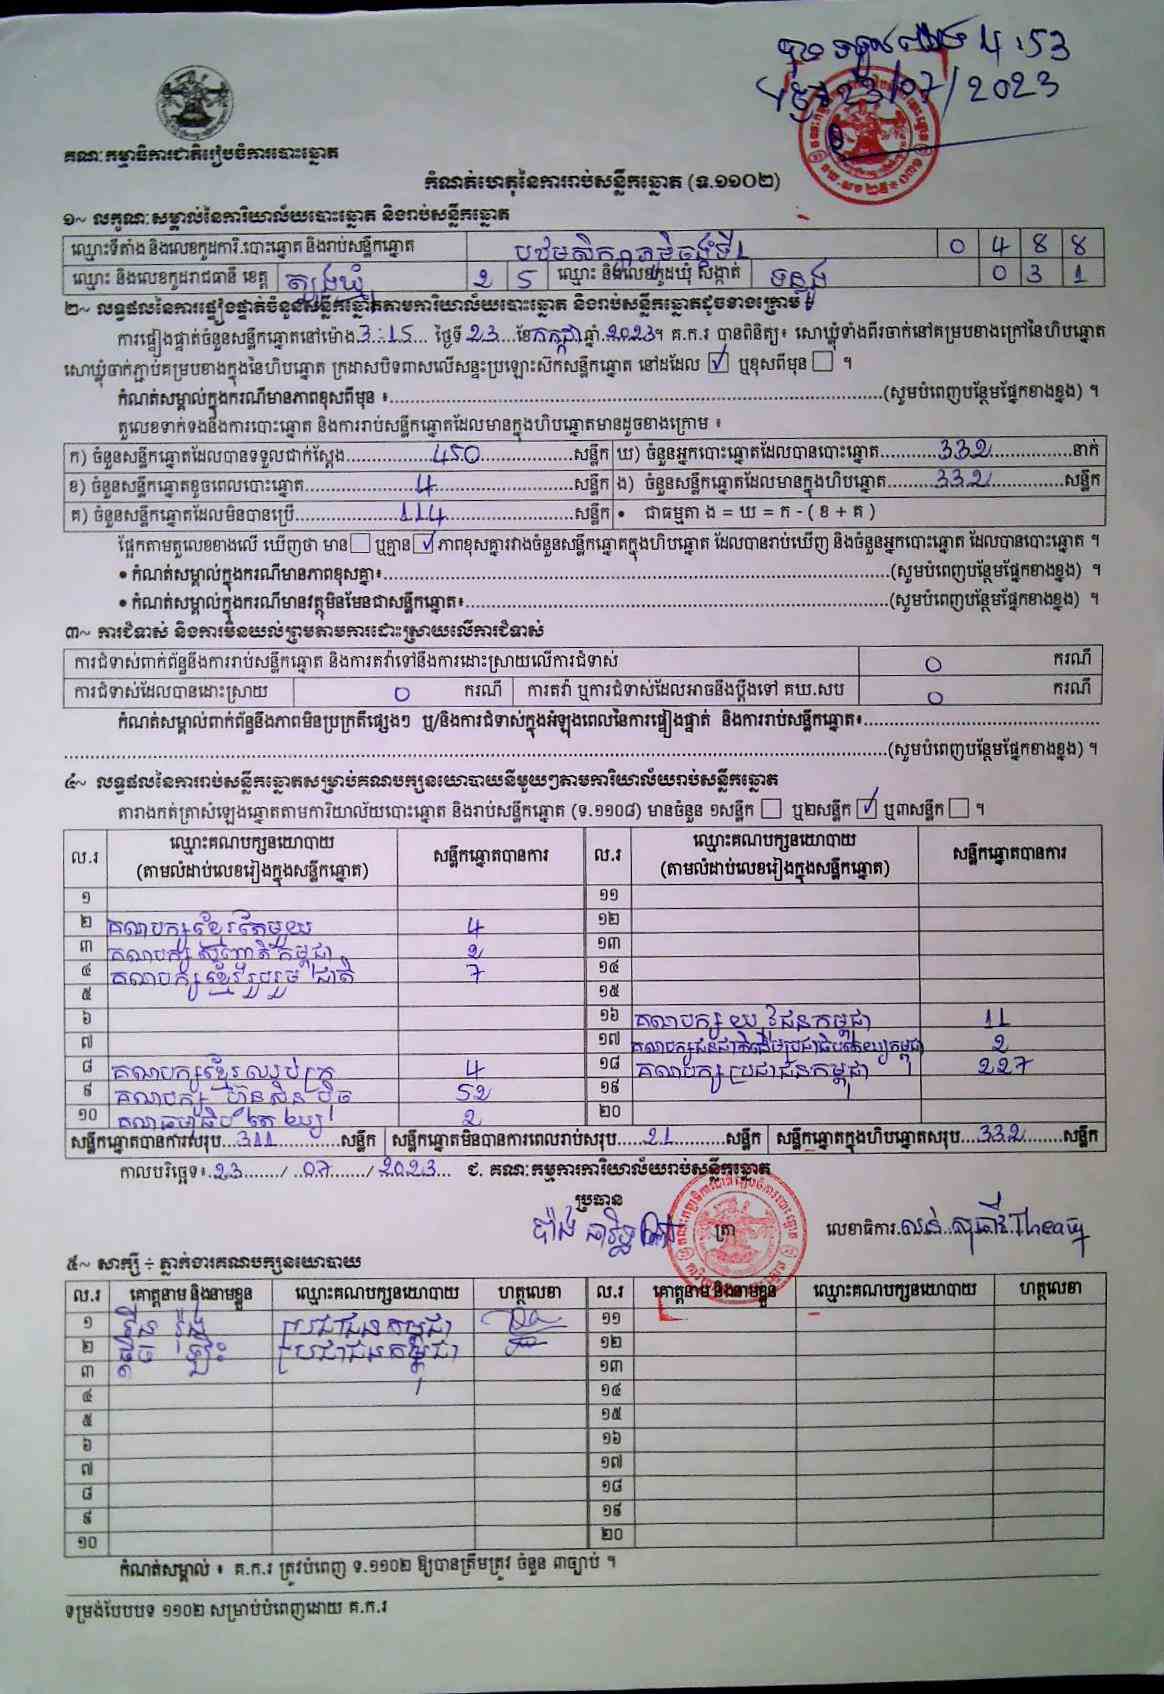 4:53
23/07/2023
គណៈកម្មាធិការជាតិរៀបចំការបោះឆ្នោត
កំណត់ហេតុនៃការរាប់សន្លឹកឆ្នោត (ទ.១១០២)
១~ លក្ខណៈសម្គាល់នៃការិយាល័យបោះឆ្នោត និងរាប់សន្លឹកឆ្នោត
ឈ្មោះទីតាំង និងលេខកូដការិ.បោះឆ្នោត និងរាប់សន្លឹកឆ្នោត បឋមសិក្សាភូមិចុងទី1 0 4 8 8
ឈ្មោះ និងលេខកូដរាជធានី ខេត្ត ត្បូងឃ្មុំ 2 5 ឈ្មោះ និងលេខកូដឃុំ សង្កាត់ ទន្លូង 0 3 1
២~ លទ្ធផលនៃការផ្ទៀងផ្ទាត់ចំនួនសន្លឹកឆ្នោតតាមការិយាល័យបោះឆ្នោត និងរាប់សន្លឹកឆ្នោតដូចខាងក្រោម ៖
ការផ្ទៀងផ្ទាត់ចំនួនសន្លឹកឆ្នោតនៅម៉ោង 3:15 ថ្ងៃទី 23 ខែ កក្កដា ឆ្នាំ 2023។ គ.ក.រ បានពិនិត្យ៖ សោឃ្លុំទាំងពីរចាក់នៅគម្របខាងក្រៅនៃហិបឆ្នោត
សោឃ្លុំចាក់ភ្ជាប់គម្របខាងក្នុងនៃហិបឆ្នោត ក្រដាសបិទពាសលើសន្ទះប្រឡោះស៊កសន្លឹកឆ្នោត នៅដដែល ☑ ឬខុសពីមុន ☐ ។
កំណត់សម្គាល់ក្នុងករណីមានភាពខុសពីមុន ៖ (សូមបំពេញបន្ថែមផ្នែកខាងខ្នង) ។
តួលេខទាក់ទងនឹងការបោះឆ្នោត និងការរាប់សន្លឹកឆ្នោតដែលមានក្នុងហិបឆ្នោតមានដូចខាងក្រោម ៖
ក) ចំនួនសន្លឹកឆ្នោតដែលបានទទួលជាក់ស្តែង 450 សន្លឹក ឃ) ចំនួនអ្នកបោះឆ្នោតដែលបានបោះឆ្នោត 332 នាក់
ខ) ចំនួនសន្លឹកឆ្នោតខូចពេលបោះឆ្នោត 4 សន្លឹក ង) ចំនួនសន្លឹកឆ្នោតដែលមានក្នុងហិបឆ្នោត 332 សន្លឹក
គ) ចំនួនសន្លឹកឆ្នោតដែលមិនបានប្រើ 114 សន្លឹក • ជាធម្មតា ង = ឃ = ក - ( ខ + គ )
ផ្អែកតាមតួលេខខាងលើ ឃើញថា មាន ☐ ឬគ្មាន ☑ ភាពខុសគ្នារវាងចំនួនសន្លឹកឆ្នោតក្នុងហិបឆ្នោត ដែលបានរាប់ឃើញ និងចំនួនអ្នកបោះឆ្នោត ដែលបានបោះឆ្នោត ។
• កំណត់សម្គាល់ក្នុងករណីមានភាពខុសគ្នា៖ (សូមបំពេញបន្ថែមផ្នែកខាងខ្នង) ។
• កំណត់សម្គាល់ក្នុងករណីមានវត្ថុមិនមែនជាសន្លឹកឆ្នោត៖ (សូមបំពេញបន្ថែមផ្នែកខាងខ្នង) ។
៣~ ការជំទាស់ និងការមិនយល់ព្រមតាមការដោះស្រាយលើការជំទាស់
ការជំទាស់ពាក់ព័ន្ធនឹងការរាប់សន្លឹកឆ្នោត និងការតវ៉ាទៅនឹងការដោះស្រាយលើការជំទាស់ 0 ករណី
ការជំទាស់ដែលបានដោះស្រាយ 0 ករណី ការតវ៉ា ឬការជំទាស់ដែលអាចនឹងប្តឹងទៅ គឃ.សប 0 ករណី
កំណត់សម្គាល់ពាក់ព័ន្ធនឹងភាពមិនប្រក្រតីផ្សេងៗ ឬ/និងការជំទាស់ក្នុងអំឡុងពេលនៃការផ្ទៀងផ្ទាត់ និងការរាប់សន្លឹកឆ្នោត៖
(សូមបំពេញបន្ថែមផ្នែកខាងខ្នង) ។
៤~ លទ្ធផលនៃការរាប់សន្លឹកឆ្នោតសម្រាប់គណបក្សនយោបាយនីមួយៗតាមការិយាល័យរាប់សន្លឹកឆ្នោត
តារាងកត់ត្រាសំឡេងឆ្នោតតាមការិយាល័យបោះឆ្នោត និងរាប់សន្លឹកឆ្នោត (ទ.១១០៨) មានចំនួន ១សន្លឹក ☐ ឬ២សន្លឹក ☑ ឬ៣សន្លឹក ☐ ។
ល.រ ឈ្មោះគណបក្សនយោបាយ (តាមលំដាប់លេខរៀងក្នុងសន្លឹកឆ្នោត) សន្លឹកឆ្នោតបានការ ល.រ ឈ្មោះគណបក្សនយោបាយ (តាមលំដាប់លេខរៀងក្នុងសន្លឹកឆ្នោត) សន្លឹកឆ្នោតបានការ
១ ១១
២ គណបក្សខ្មែរតែមួយ 4 ១២
៣ គណបក្សសញ្ជាតិកម្ពុជា 2 ១៣
៤ គណបក្សខ្មែររួបរួមជាតិ 7 ១៤
៥ ១៥
៦ ១៦ គណបក្សយុវជនកម្ពុជា 11
៧ ១៧ គណបក្សជនជាតិដើមប្រជាធិបតេយ្យកម្ពុជា 2
៨ គណបក្សខ្មែរឈប់ក្រ 4 ១៨ គណបក្សប្រជាជនកម្ពុជា 227
៩ គណបក្សហ៊្វុនស៊ិនប៉ិច 52 ១៩
១០ 2 ២០
សន្លឹកឆ្នោតបានការសរុប 311 សន្លឹក សន្លឹកឆ្នោតមិនបានការពេលរាប់សរុប 21 សន្លឹក សន្លឹកឆ្នោតក្នុងហិបឆ្នោតសរុប 332 សន្លឹក
កាលបរិច្ឆេទ៖ 23 / 07 / 2023 ជ. គណៈកម្មការការិយាល័យរាប់សន្លឹកឆ្នោត
ប្រធាន
ត្រា លេខាធិការ Theavy
៥~ សាក្សី ÷ ភ្នាក់ងារគណបក្សនយោបាយ
ល.រ គោត្តនាម និងនាមខ្លួន ឈ្មោះគណបក្សនយោបាយ ហត្ថលេខា ល.រ គោត្តនាម និងនាមខ្លួន ឈ្មោះគណបក្សនយោបាយ ហត្ថលេខា
១ ប្រជាជនកម្ពុជា ១១
២ ប្រជាជនកម្ពុជា ១២
៣ ១៣
៤ ១៤
៥ ១៥
៦ ១៦
៧ ១៧
៨ ១៨
៩ ១៩
១០ ២០
កំណត់សម្គាល់ ៖ គ.ក.រ ត្រូវបំពេញ ទ.១១០២ ឱ្យបានត្រឹមត្រូវ ចំនួន ៣ច្បាប់ ។
ទម្រង់បែបបទ ១១០២ សម្រាប់បំពេញដោយ គ.ក.រ